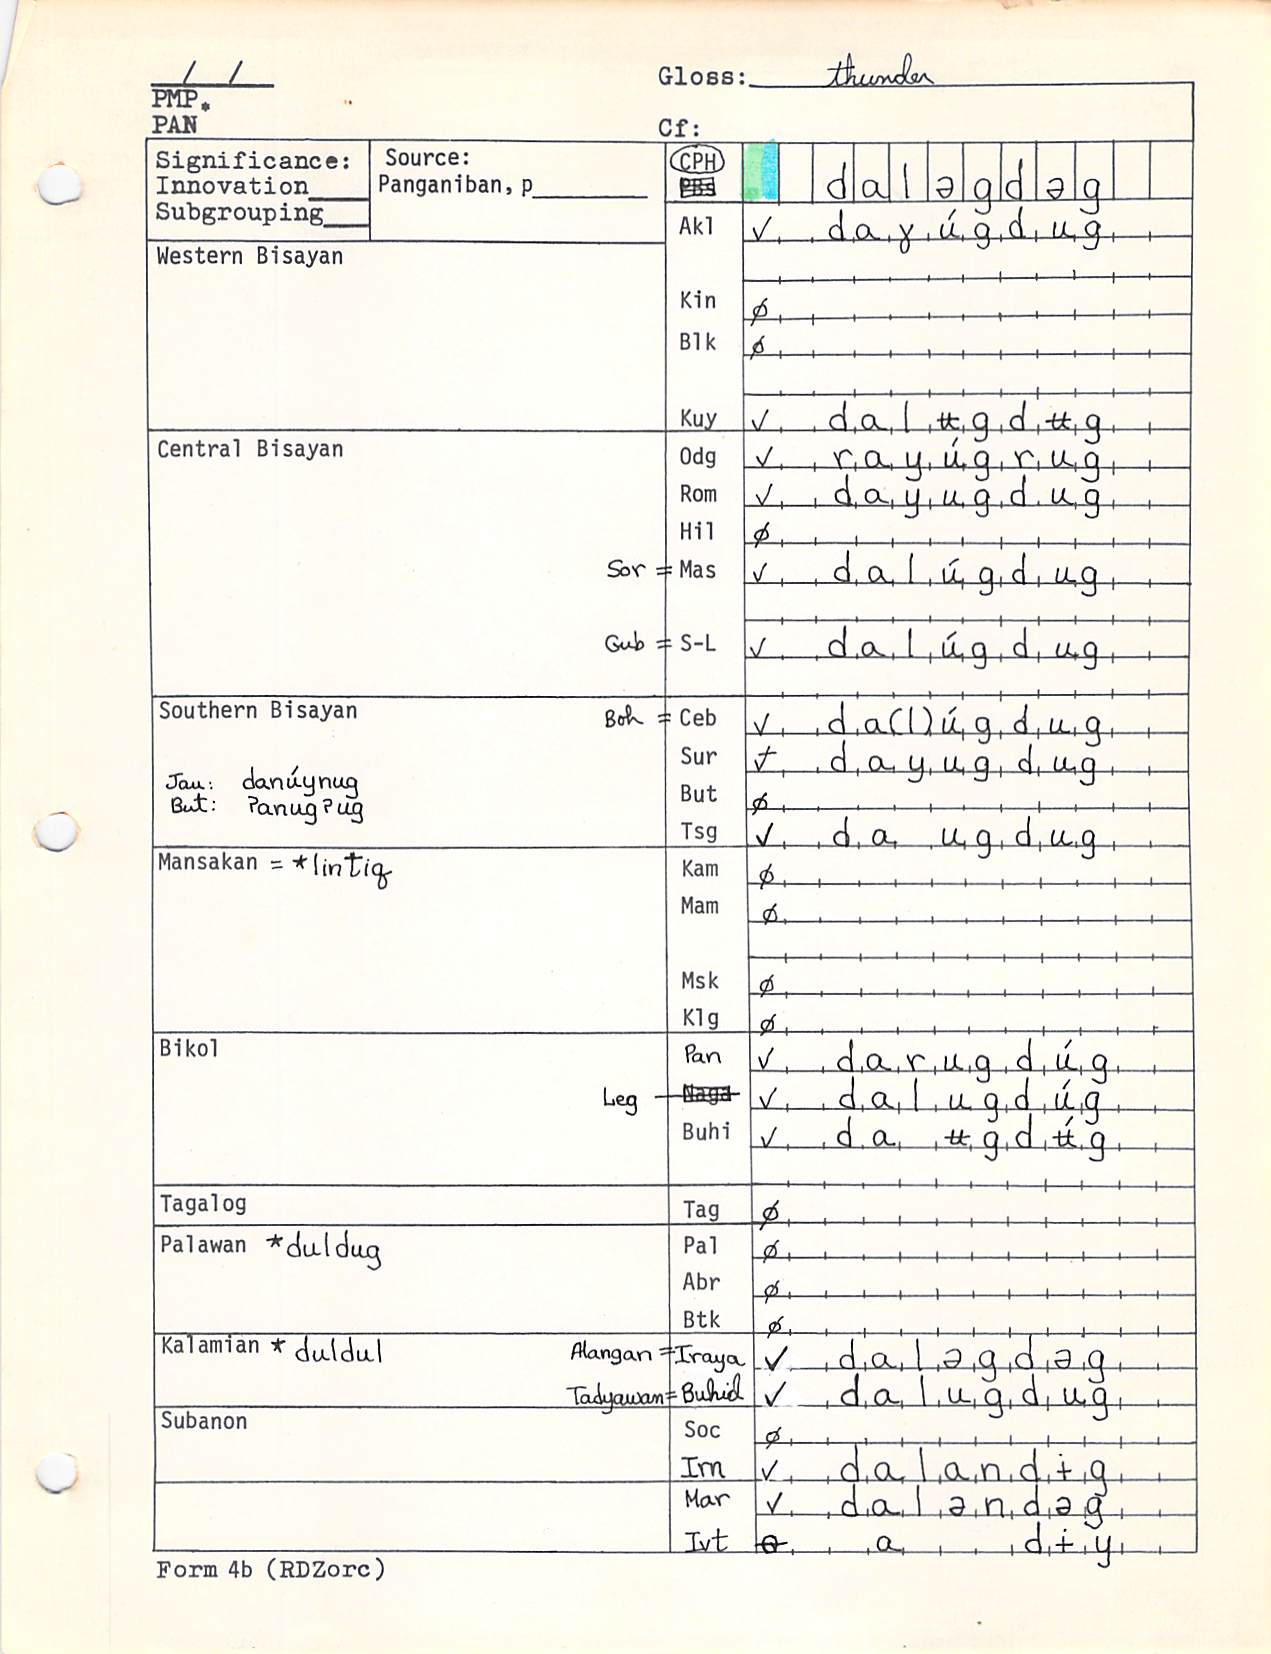 / / Gloss: thunder
PMP.
PAN Cf:
Significance: Source: CPH
Innovation Panganiban, p PBS daləgdəg
Subgrouping
Akl ✓ daɣúgdug
Western Bisayan
Kin ø
Blk ø
Kuy ✓ dalʉgdʉg
Central Bisayan Odg ✓ rayúgrug
Rom ✓ dayugdug
Hil ø
Sor = Mas ✓ dalúgdug
Gub = S-L ✓ dalúgdug
Southern Bisayan Boh = Ceb ✓ da(l)úgdug
Sur ✓ dayugdug
Jau: danúynug
But: ʔanugʔug But ø
Tsg ✓ da ugdug
Mansakan = *lintiq Kam ø
Mam ø
Msk ø
Klg ø
Bikol Pan ✓ darugdúg
Leg Naga ✓ dalugdúg
Buhi ✓ da ʉgdʉ́g
Tagalog Tag ø
Palawan *duldug Pal ø
Abr ø
Btk ø
Kalamian *duldul Alangan = Iraya ✓ daləgdəg
Tadyawan = Buhid ✓ dalugdug
Subanon Soc ø
Irn ✓ dalandɨg
Mar ✓ daləndəg
Ivt ø a dɨy
Form 4b (RDZorc)